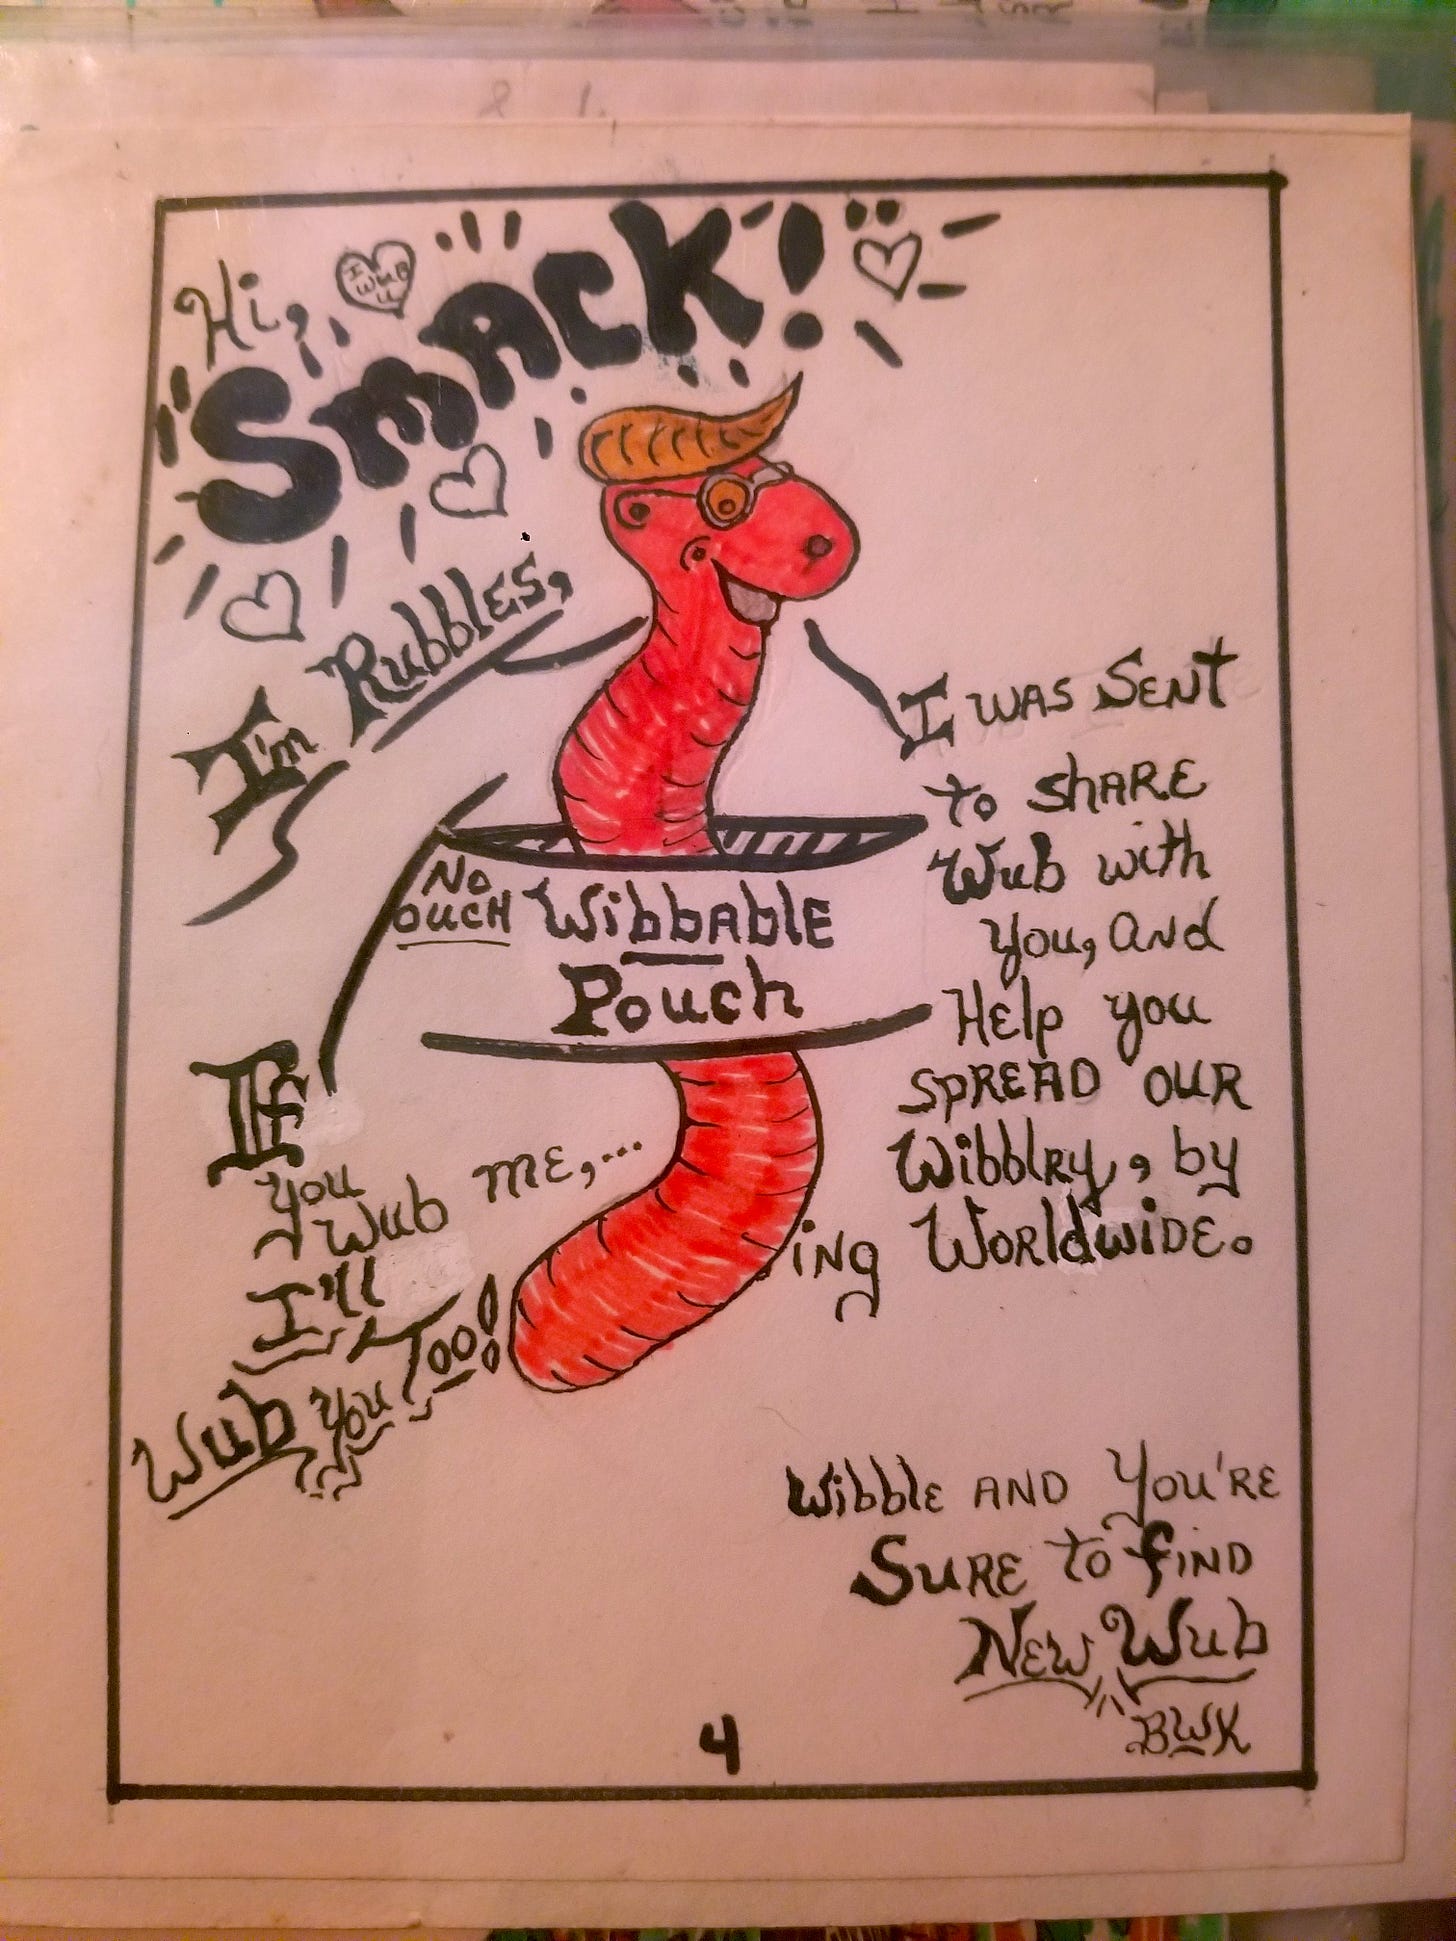 Hi,
I WUB U
SMACK!
I'm Rubbles,
I WAS SENT
to SHARE
Wub with
You, And
Help you
SPREAD OUR
Wibblry, by
ing Worldwide.
No
OUCH
Wibbable
Pouch
IF
you
Wub ME,...
I'll
Wub You Too!
Wibble AND You're
Sure to find
New Wub
BWK
4